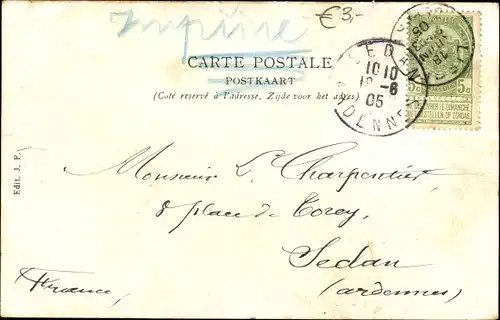 Imprimé
€3-
CARTE POSTALE
POSTKAART
(Côté réservé à l'adresse, Zijde voor het adres)
SEDAN
10 10
18 -6
05
ARDENNES
5c 5c
NE PAS LIVRER LE DIMANCHE
NIET BESTELLEN OP ZONDAG
Edit. J. F.
Monsieur L. Charpentier,
8 place de Torcy,
Sedan
(ardennes)
France,